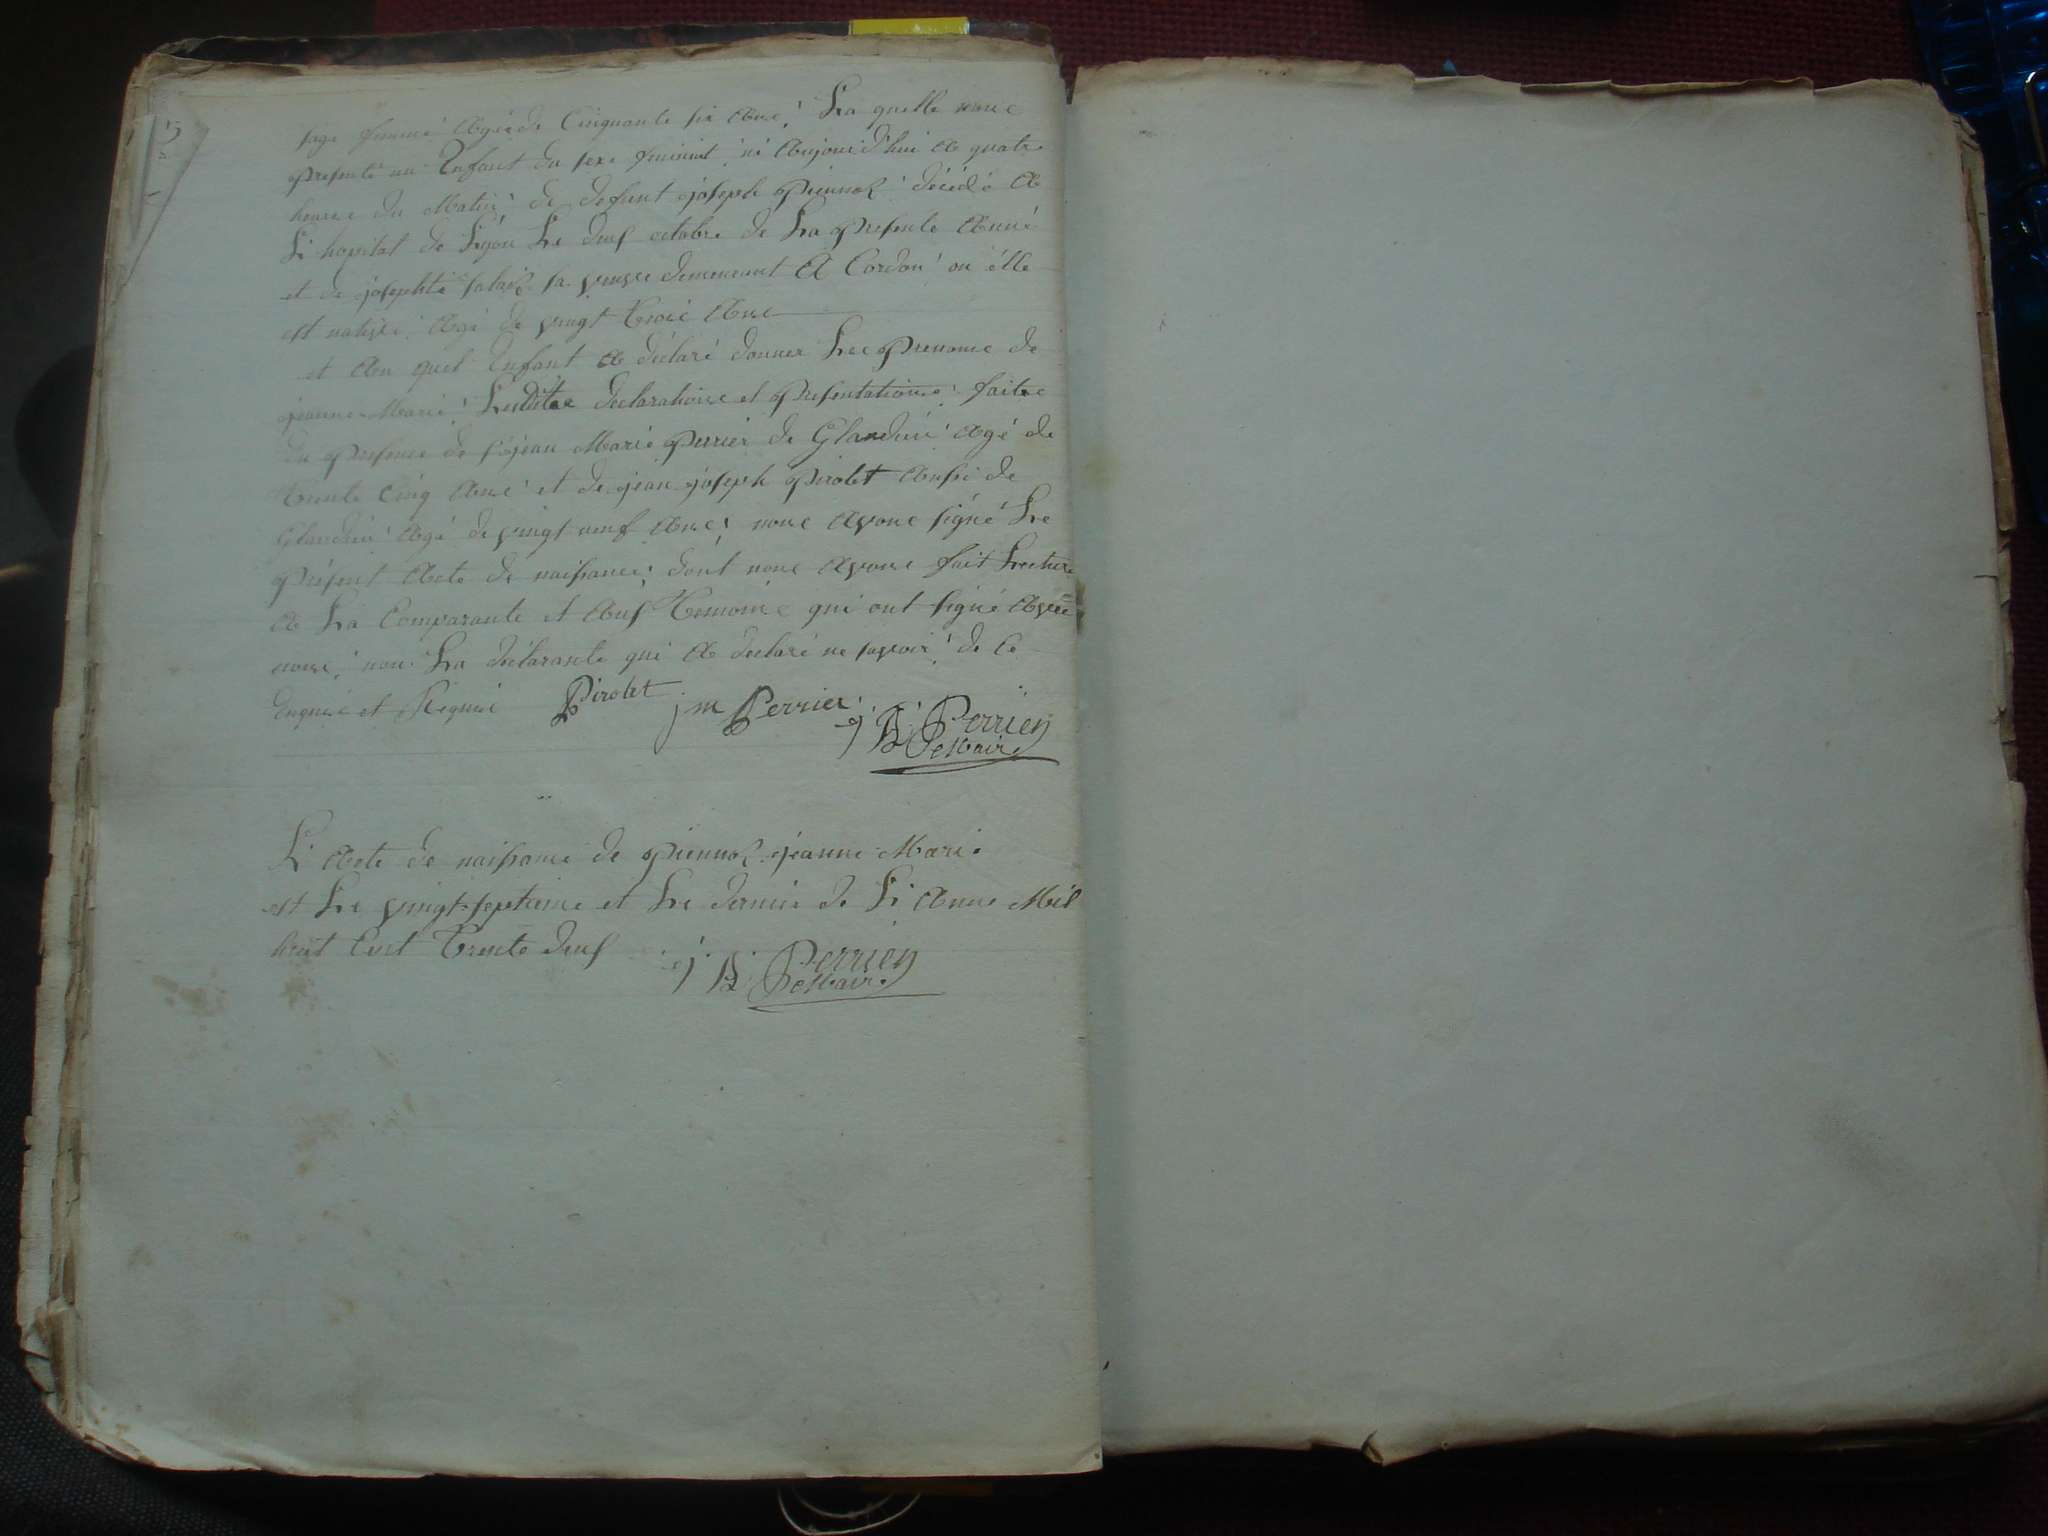 sage femme Agée de Cinquante six Ans, La quelle nous
presenté un Enfant du sexe feminin né Aujourd'hui A quatre
heures du Matin de defunt joseph décédé A
L'hopital de Lyon Le deux octobre de La presente Anné
et de josephte sa veuve demeurant A Cordon ou elle
est native Agé de vingt trois Ans
et Au quel Enfant A déclaré donner Les prenoms de
jeanne Marie Lesdites declarations et presentations faites
En presence de jean Marie perrier de Glandieu Agé de
trente Cinq Ans et de jean joseph pirolet Aussi de
Glandieu Agé de vingt neuf Ans, nous Avons signé Le
présent Acte de naissance dont nous Avons fait Lecture
A La Comparante et Aux temoins qui ont signé Avec
nous, non La déclarante qui A declaré ne savoir de Ce
Enquise et Requise Pirolet jm Perrier j. B. Perrier
Le Maire
L'Acte de naissance de jeanne Marie
est Le vingt septieme et Le dernier de L'Anné Mil
huit Cent trente deux j. B. Perrier
Le Maire